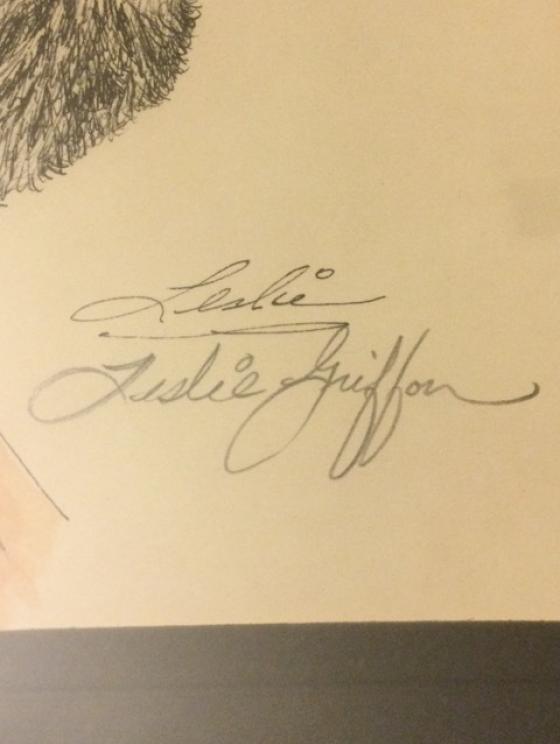 Leslie
Leslie Griffon